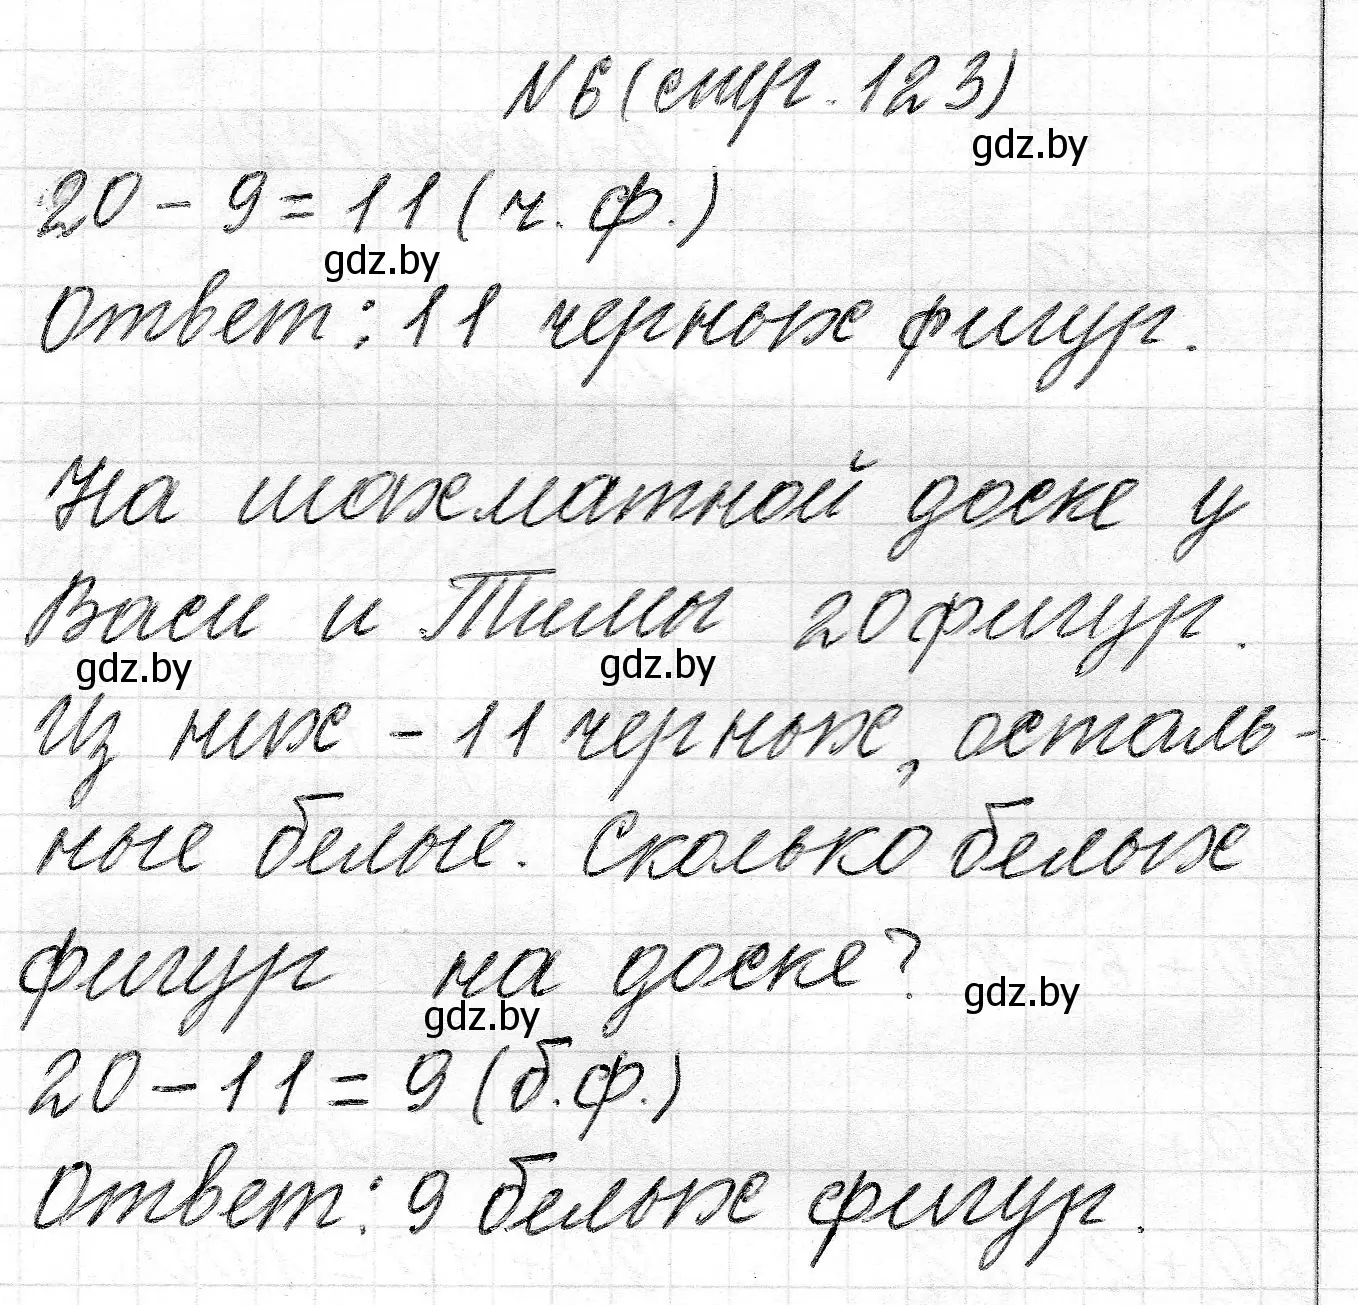 N 6 (стр. 123)
gdz.by
20 - 9 = 11 (ч. ф.)
gdz.by
Ответ: 11 черных фигур.
На шахматной доске у
Васи и Тимы 20 фигур.
gdz.by gdz.by
Из них - 11 черных, осталь-
ные белые. Сколько белых
фигур на доске?
gdz.by gdz.by
20 - 11 = 9 (б. ф.)
Ответ: 9 белых фигур.